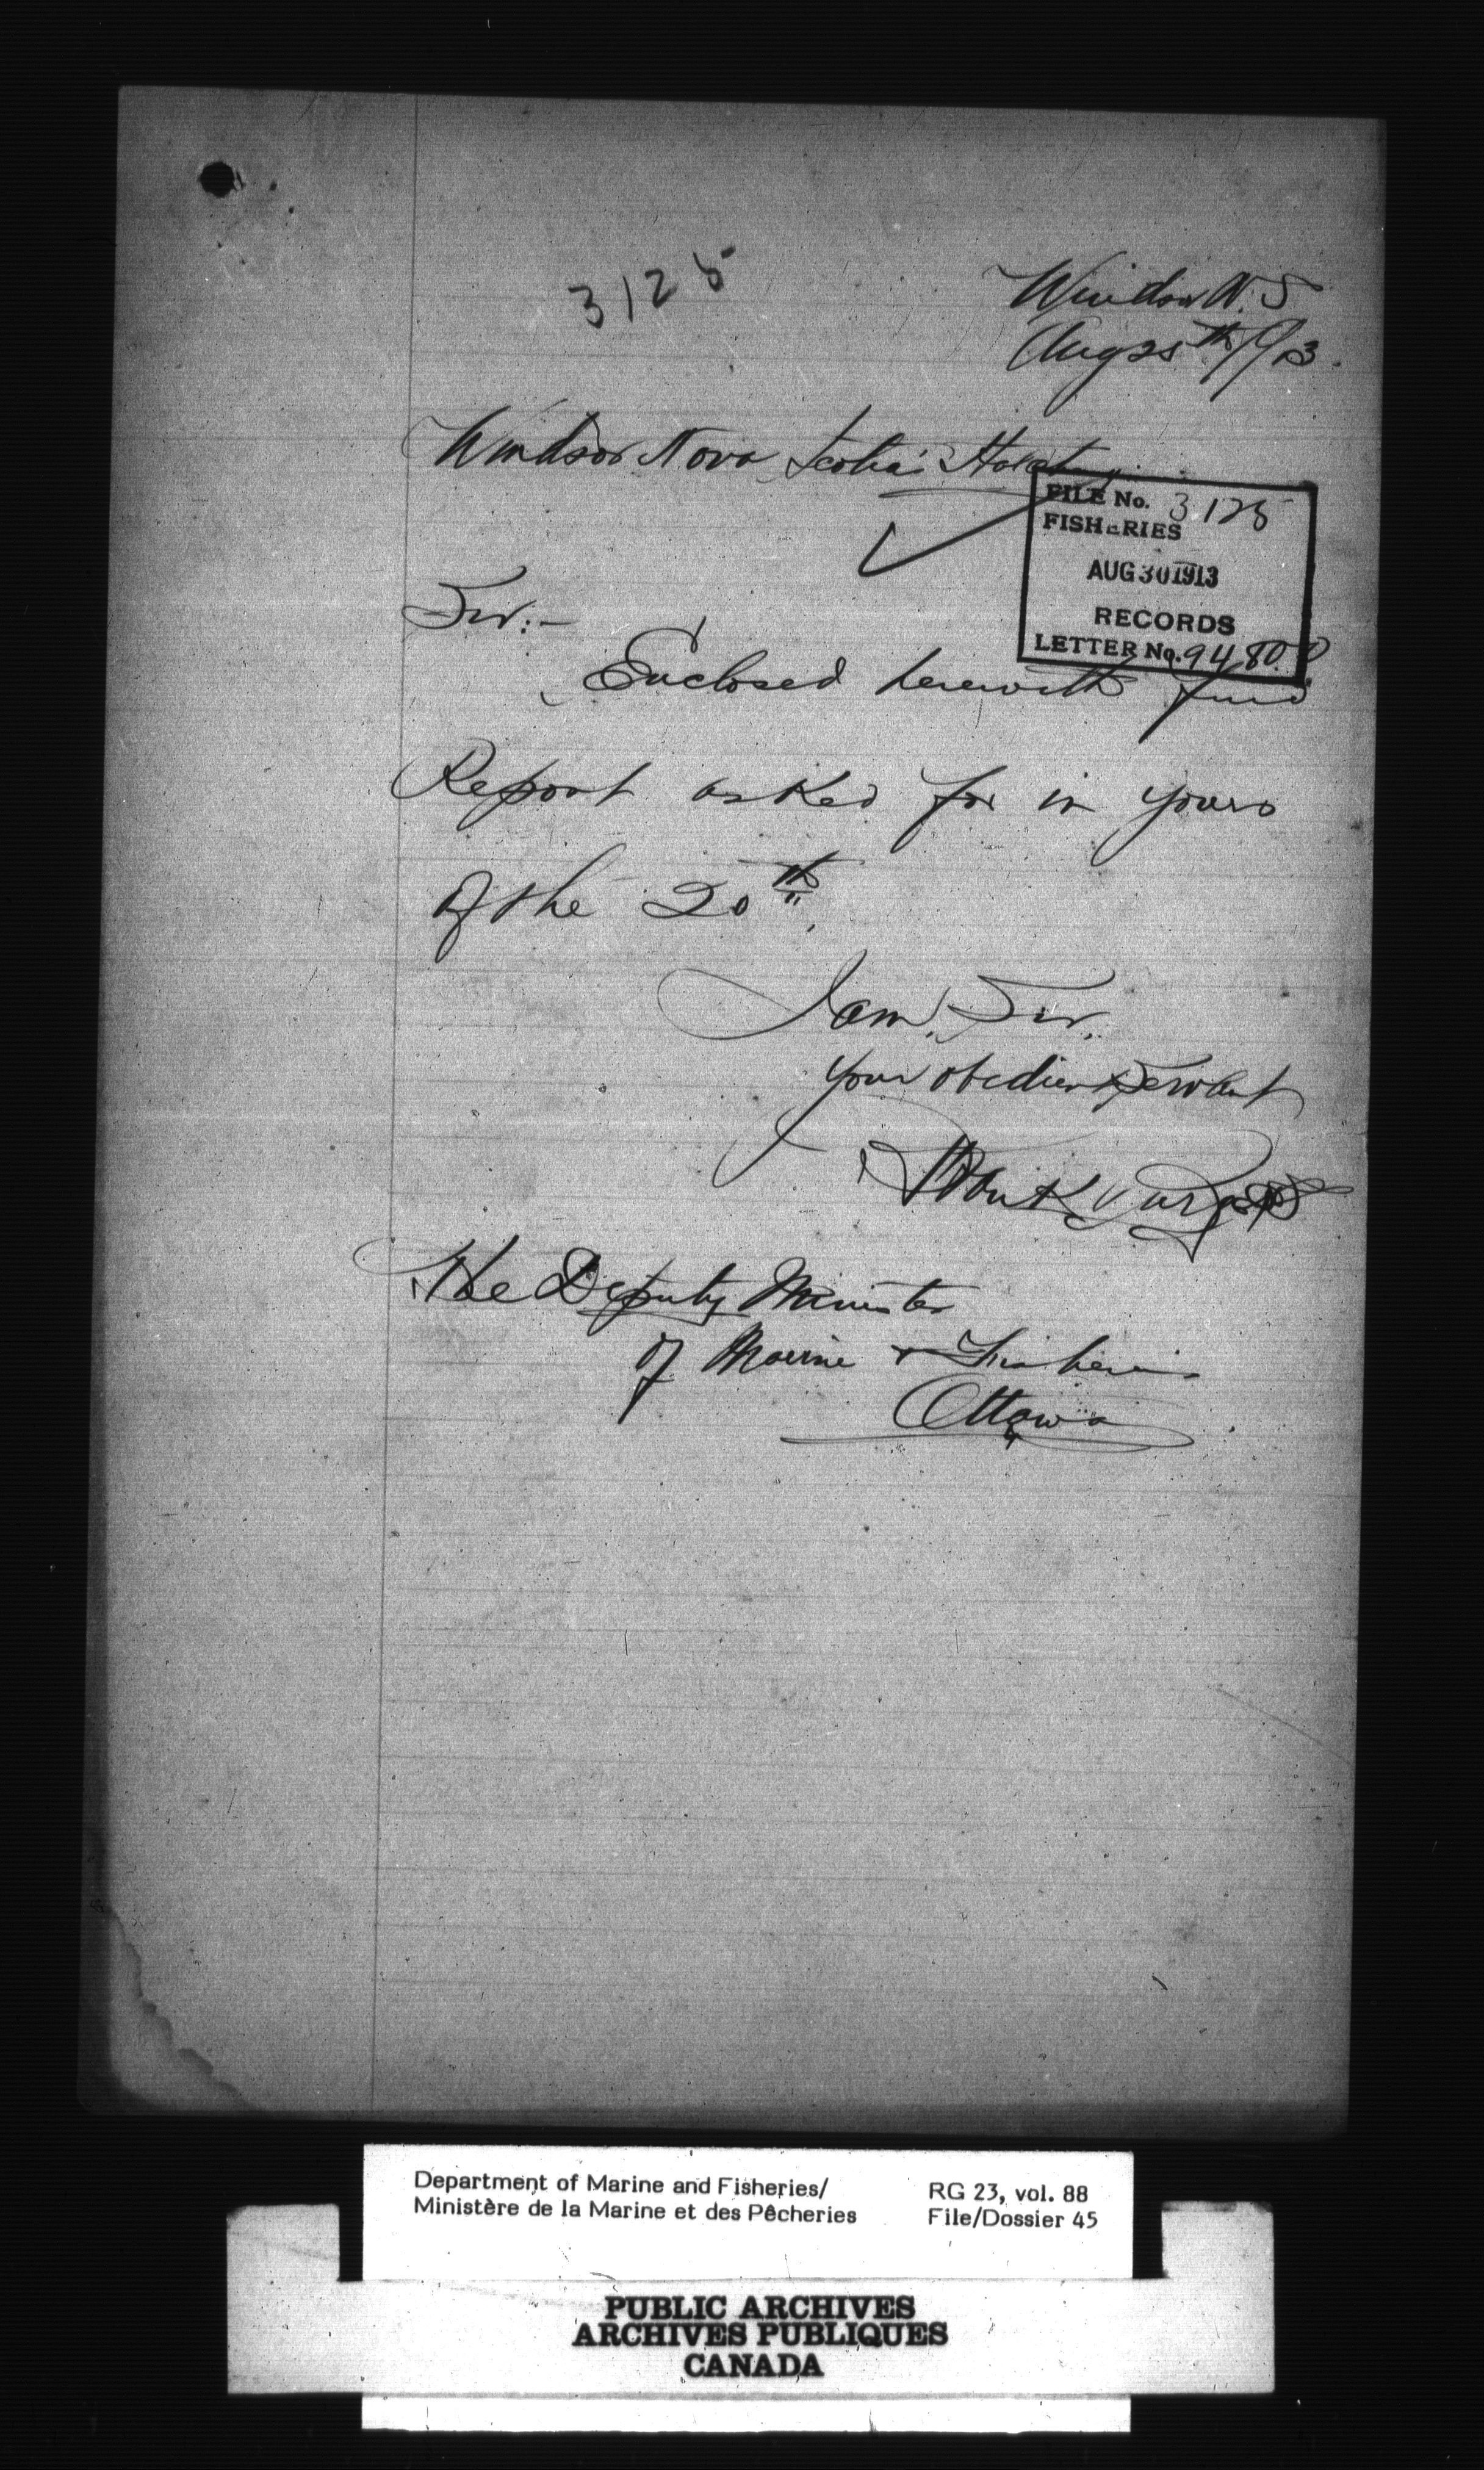 3125
Windsor N.S
Aug 25th/913.
Windsor Nova Scotia Hatchery.
FILE No. 3125
FISHERIES
AUG 30 1913
RECORDS
LETTER No. 9480.
Sir:-
Enclosed herewith find
Report asked for in yours
of the 20th.
I am, Sir,
Your obedient Servant
The Deputy Minister
of Marine & Fisheries
Ottawa
Department of Marine and Fisheries/
Ministère de la Marine et des Pêcheries
RG 23, vol. 88
File/Dossier 45
PUBLIC ARCHIVES
ARCHIVES PUBLIQUES
CANADA